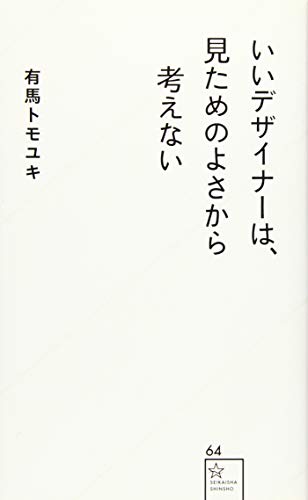 いいデザイナーは、
見ためのよさから
考えない
有馬トモユキ
64
SEIKAISHA
SHINSHO